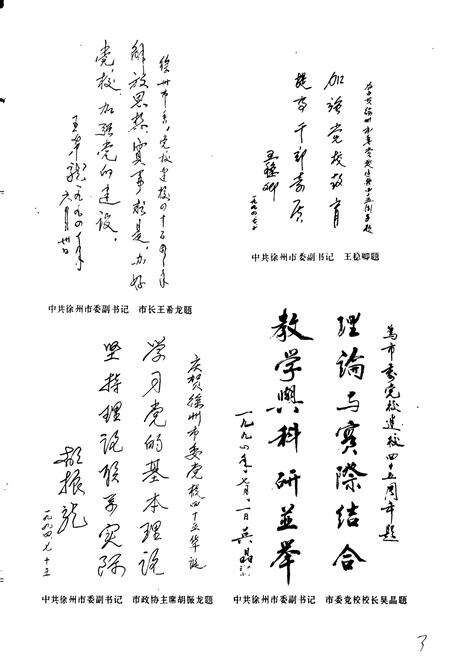 徐州市委党校建校四十五周年
解放思想实事求是,办好
党校加强党的建设。
王希龙 一九九四年
六月卅日
中共徐州市委副书记 市长王希龙题
为中共徐州市委党校建校四十五周年题
加强党校教育
提高干部素质
王稳卿
一九九四.七.
中共徐州市委副书记 王稳卿题
庆贺徐州市委党校四十五华诞
学习党的基本理论
坚持理论联系实际
胡振龙
一九九四.七.十五
中共徐州市委副书记 市政协主席胡振龙题
为市委党校建校四十五周年题
理论与實際结合
教学與科研並举
一九九四年七月一日 吴晶
中共徐州市委副书记 市委党校校长吴晶题
3